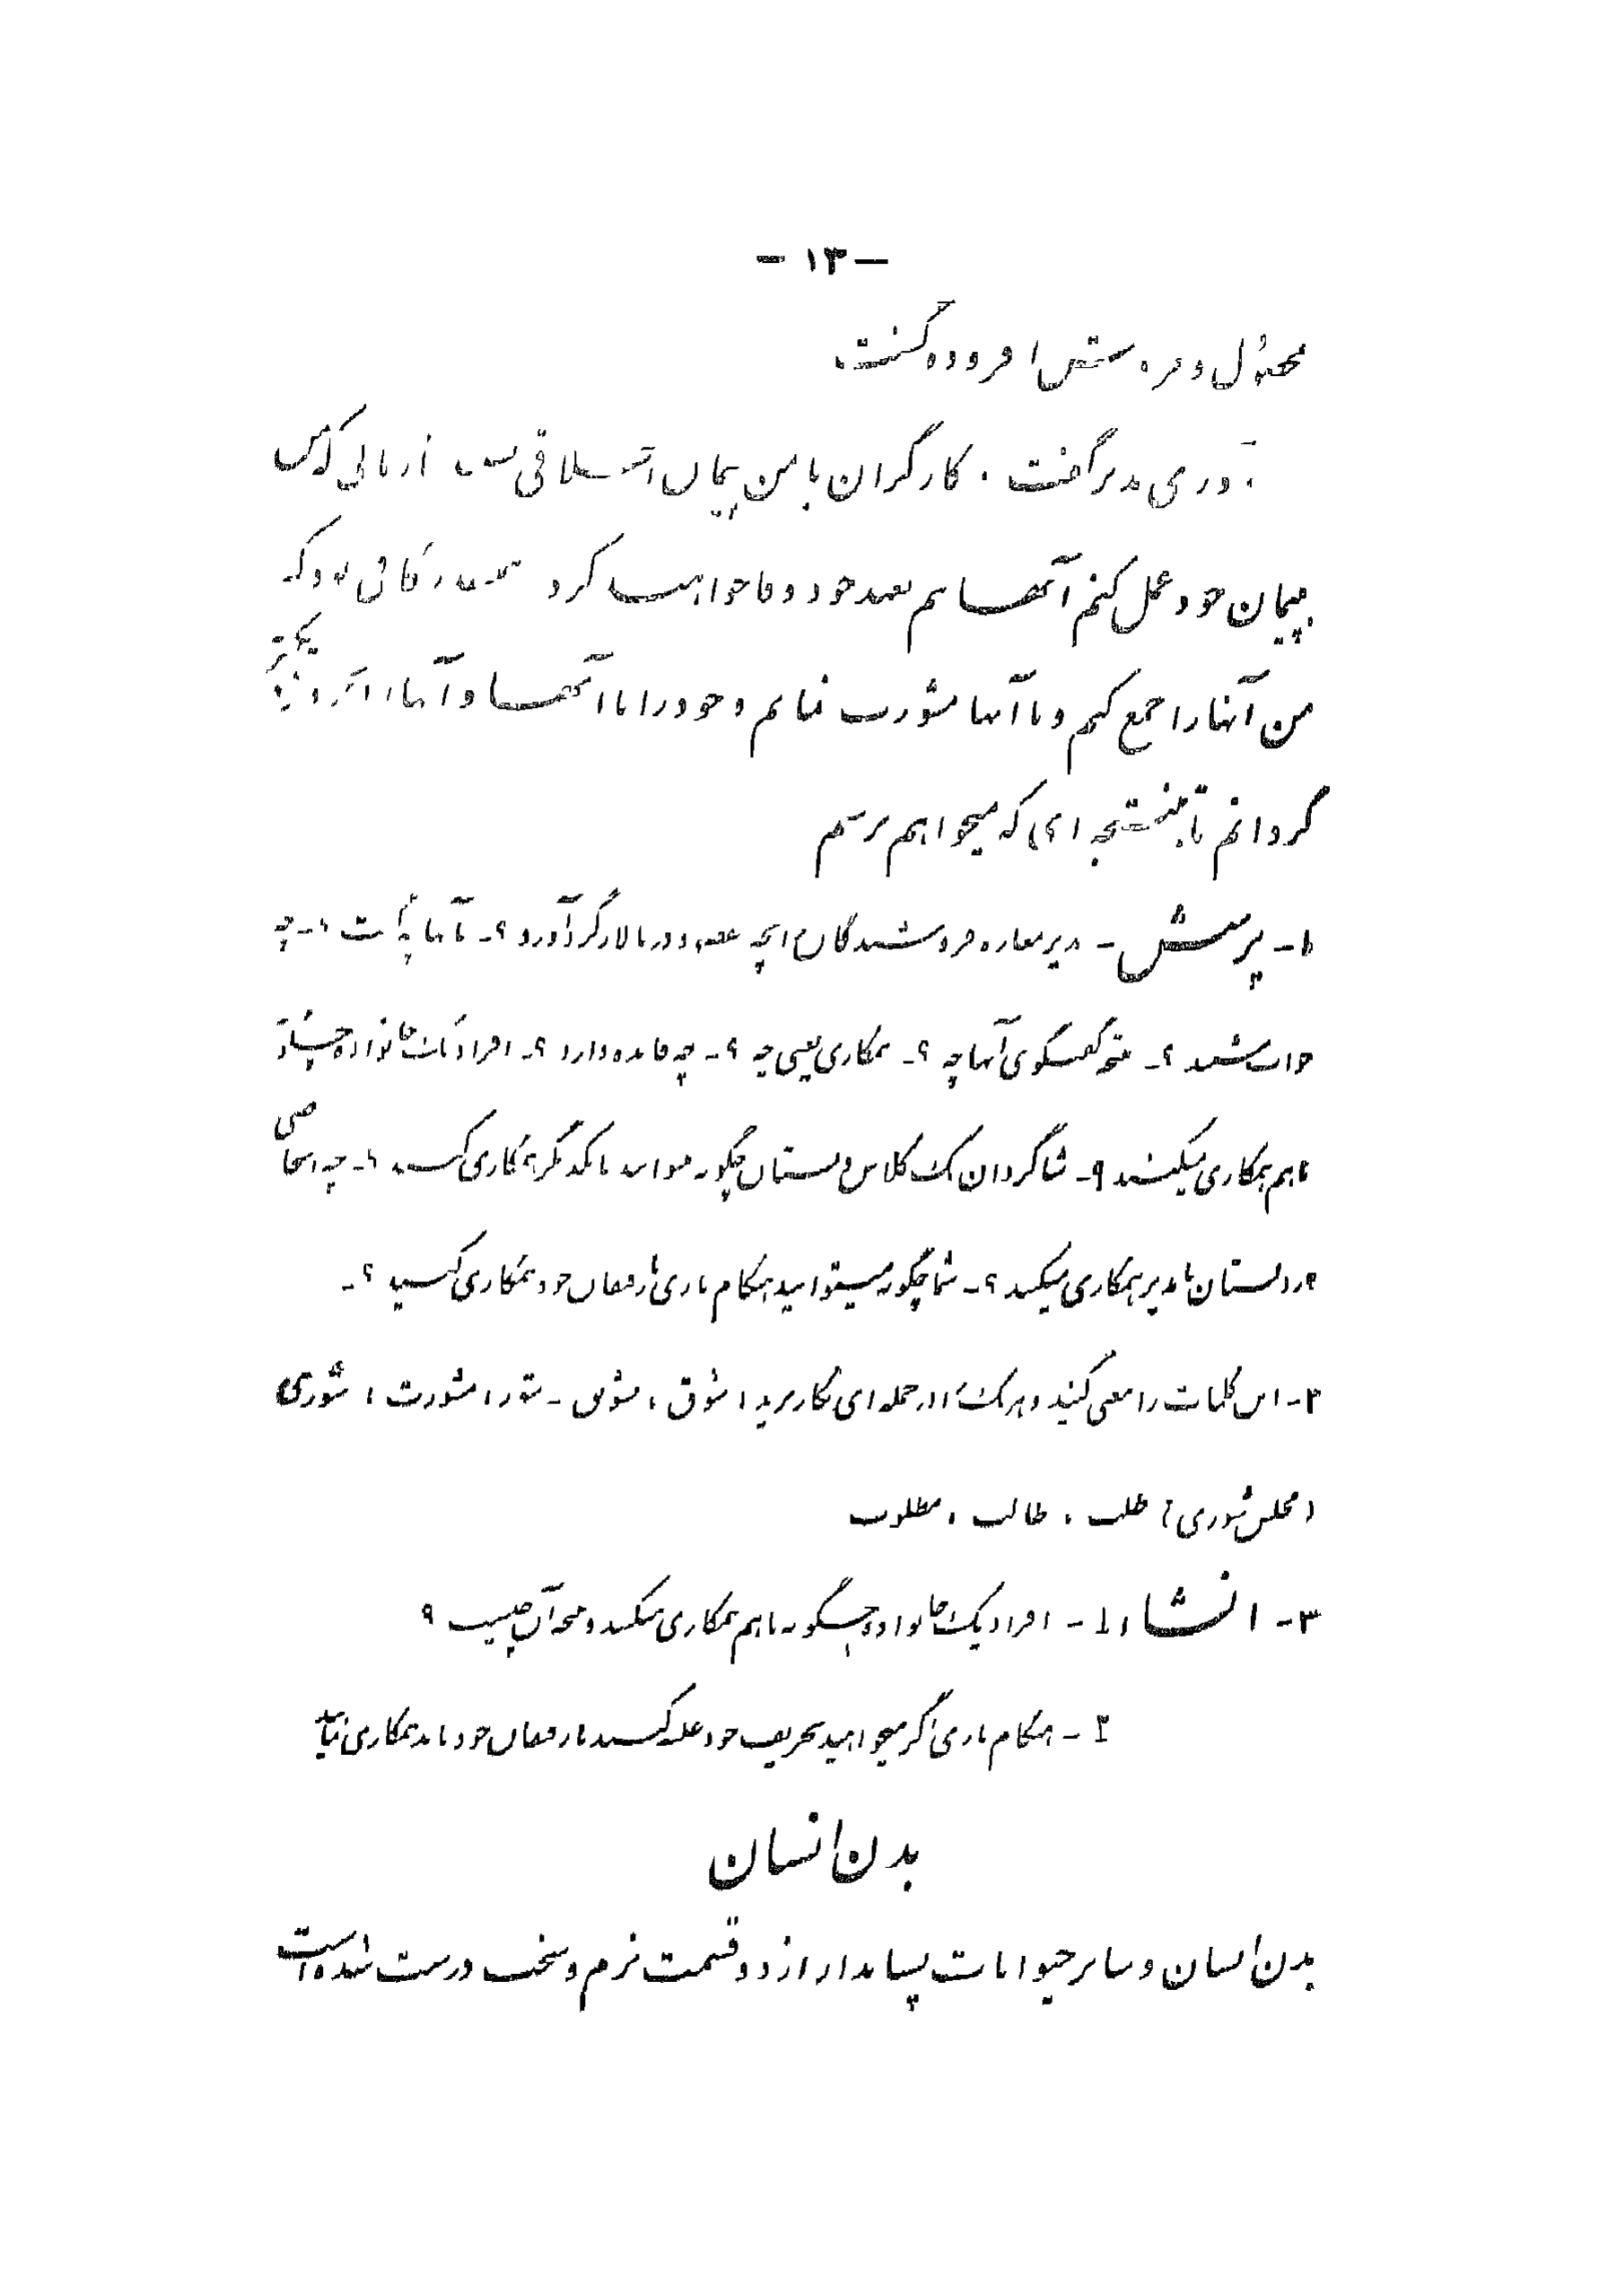 - ۱۳ -
محصول و مزد ستش افزوده گشت
روزی مدیر گفت . کارگران با من پیمان
بپیمان خود عمل کنم آنها هم بعهد خود وفا خواهند کرد
من آنها را جمع کنم و با آنها مشورت نمایم و خود را با آنها و آنها را
گردانم تا بنتیجه ای که میخواهم برسم
۱- پرسش - مدیر مغازه فروشندگان را بچه در تالار گرد آورد ؟- با آنها چه گفت ؟- چه
جواب شنید ؟- نتیجه گفتگوی آنها چه ؟- همکاری یعنی چه ؟- چه فایده دارد ؟- افراد یک خانواده چگونه
با هم همکاری میکنند ؟- شاگردان یک کلاس دبستان چگونه میتوانند با یکدیگر همکاری کنند ؟- چه اشخاصی
در دبستان با مدیر همکاری میکنند ؟- شما چگونه میتوانید هنگام بازی با رفیقان خود همکاری کنید ؟-
۲- این کلمات را معنی کنید و هر یک را در جمله ای بکار برید ، شوق ، مشوق - شور ، مشورت ، شوری
(مجلس شوری) طلب ، طالب ، مطلوب
۳- انشاء ۱- افراد یک خانواده چگونه با هم همکاری میکنند و نتیجه آن چیست ؟
۲- هنگام بازی اگر میخواهید بحریف خود غلبه کنید با رفیقان خود باید همکاری نمایید
بدن انسان
بدن انسان و سایر حیوانات پستاندار از دو قسمت نرم و سخت درست شده است